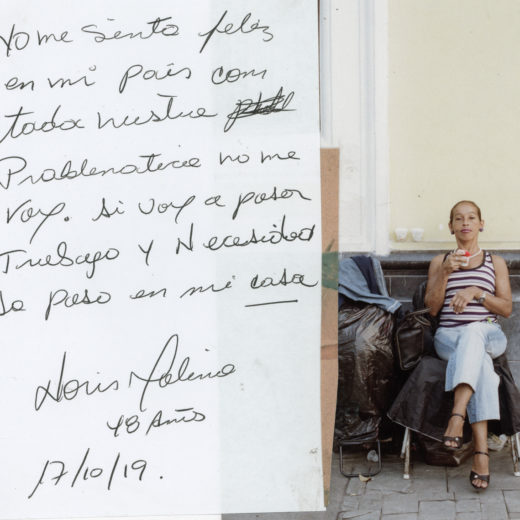 Yo me siento feliz
en mi país com
toda nuestra
Problematica no me
voy. si voy a pasar
Trabajo y Necesidad
lo paso en mi casa
Noris Molina
48 Años
17/10/19.